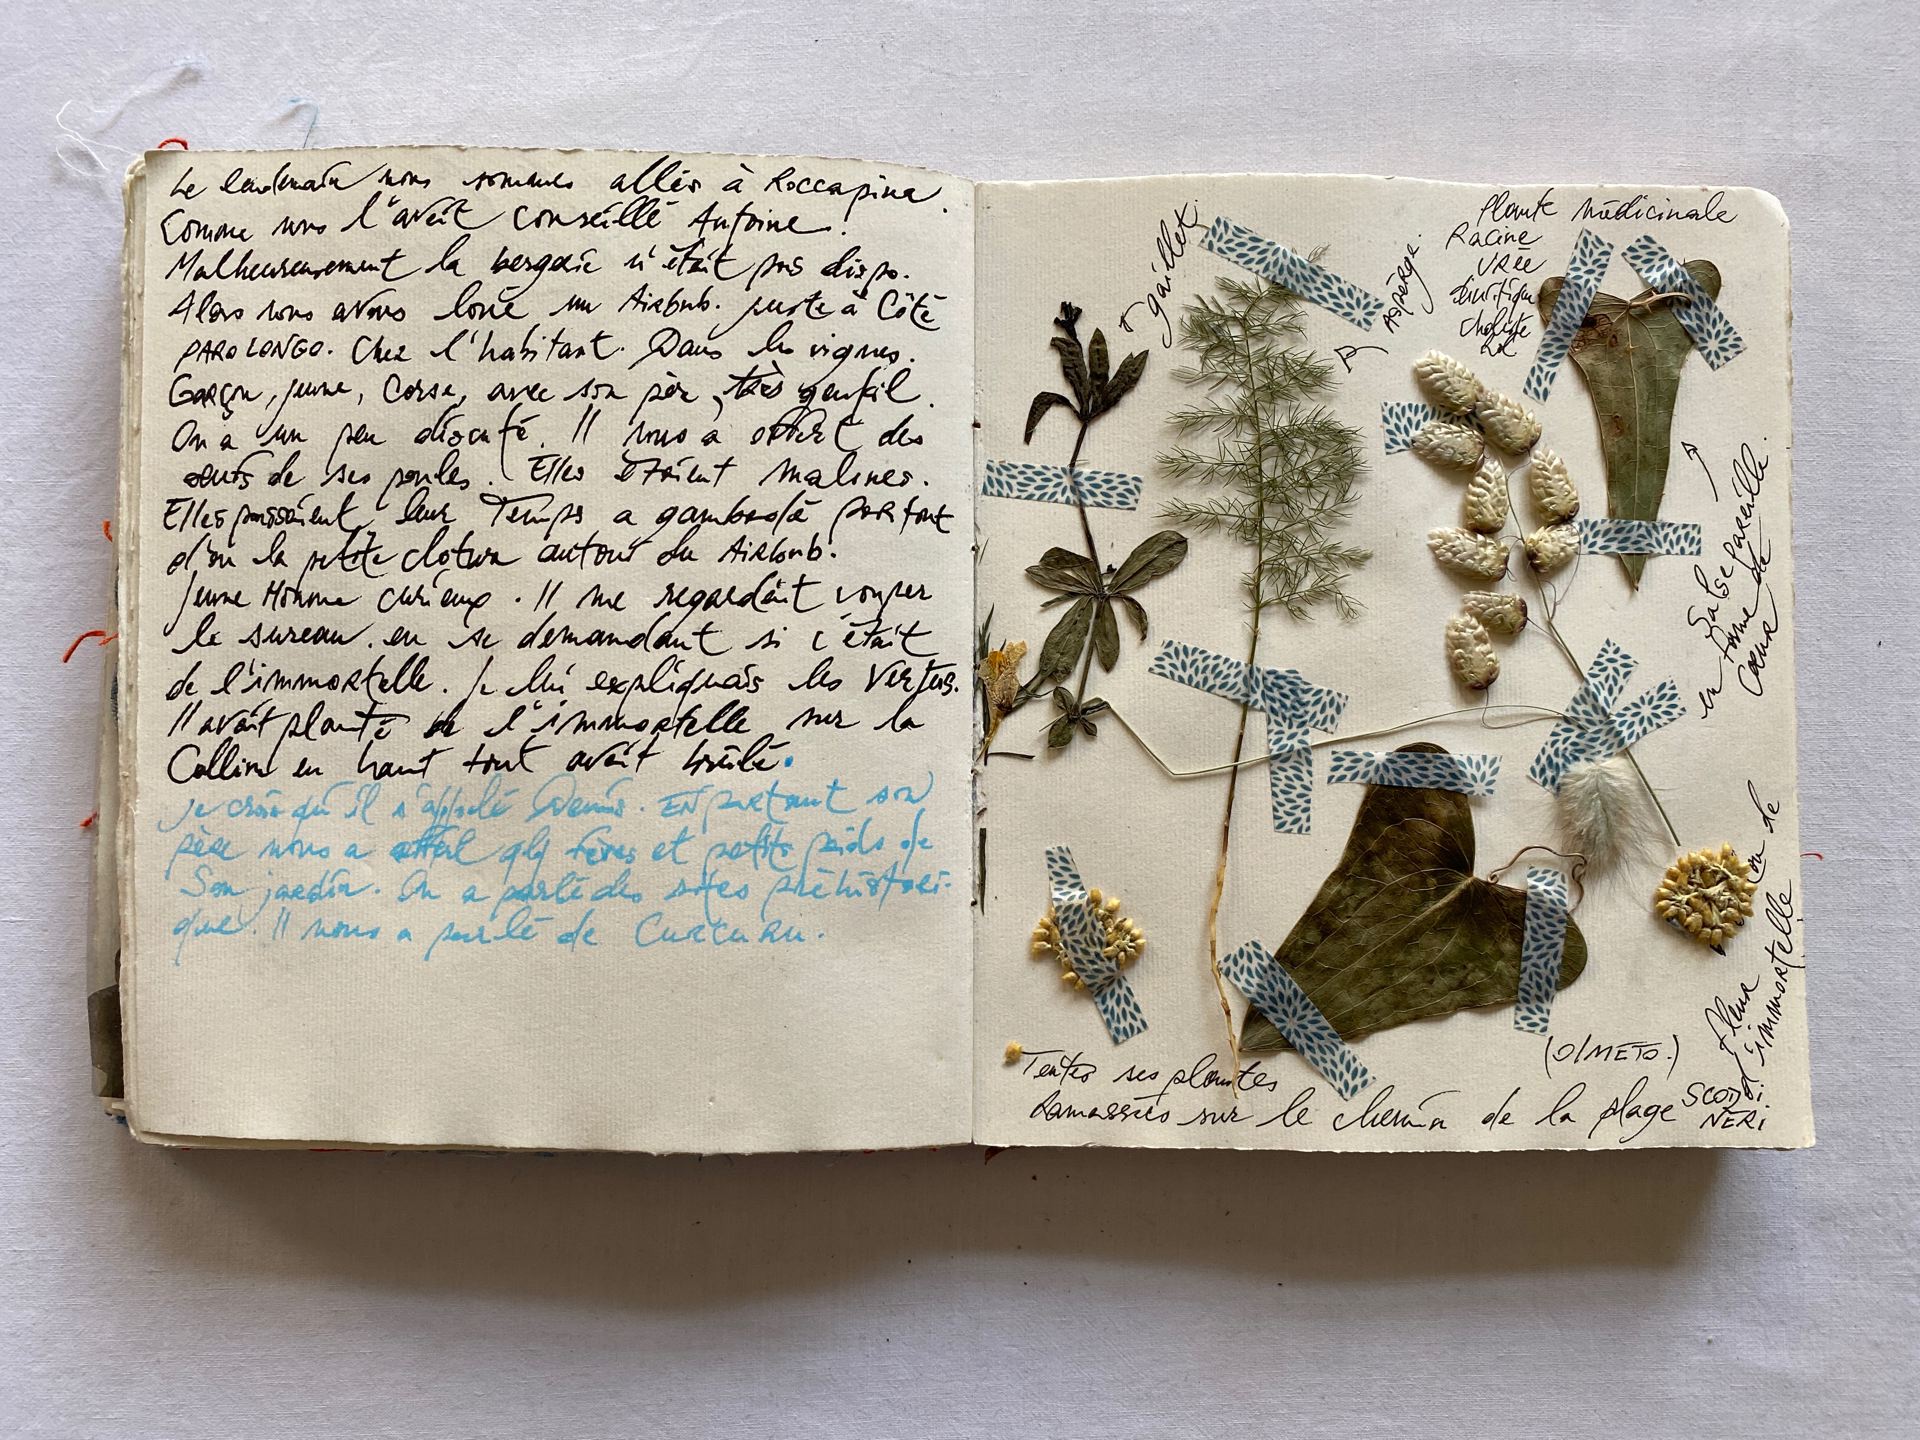 Le lendemain nous sommes allés à Roccapina.
Comme nous l'avait conseillé Antoine.
Malheureusement la bergerie n'était pas dispo.
Alors nous avons loué un Airbnb. juste à Côté
PAROLONGO. Chez l'habitant. Dans les vignes.
Garçon, jeune, Corse, avec son père, très gentil.
On a un peu discuté. Il nous a offert des
œufs de ses poules. Elles étaient malines.
Elles passaient leur Temps a gambadé partout
d'ou la petite cloture autour du Airbnb.
Jeune Homme curieux. Il me regardait couper
le sureau. en se demandant si c'était
de l'immortelle. Je lui expliquais les Vertus.
Il avait planté de l'immortelle sur la
Colline en haut tout avait brûlé.
Je crois qu'il s'appelé Denis. EN partant son
père nous a offert qlq fèves et petits poids de
Son jardin. On a parlé des sites préhistori-
que. Il nous a parlé de Cucuru.
gaillet.
Aspèrge.
Plante médicinale
Racine
URÉE
diurétique
Salse pareille
en forme de
Cœur
ou de
fleur
d'immortelle
(OLMETO.)
Toutes ses plantes
Ramassées sur le chemin de la plage SCODI
NERI